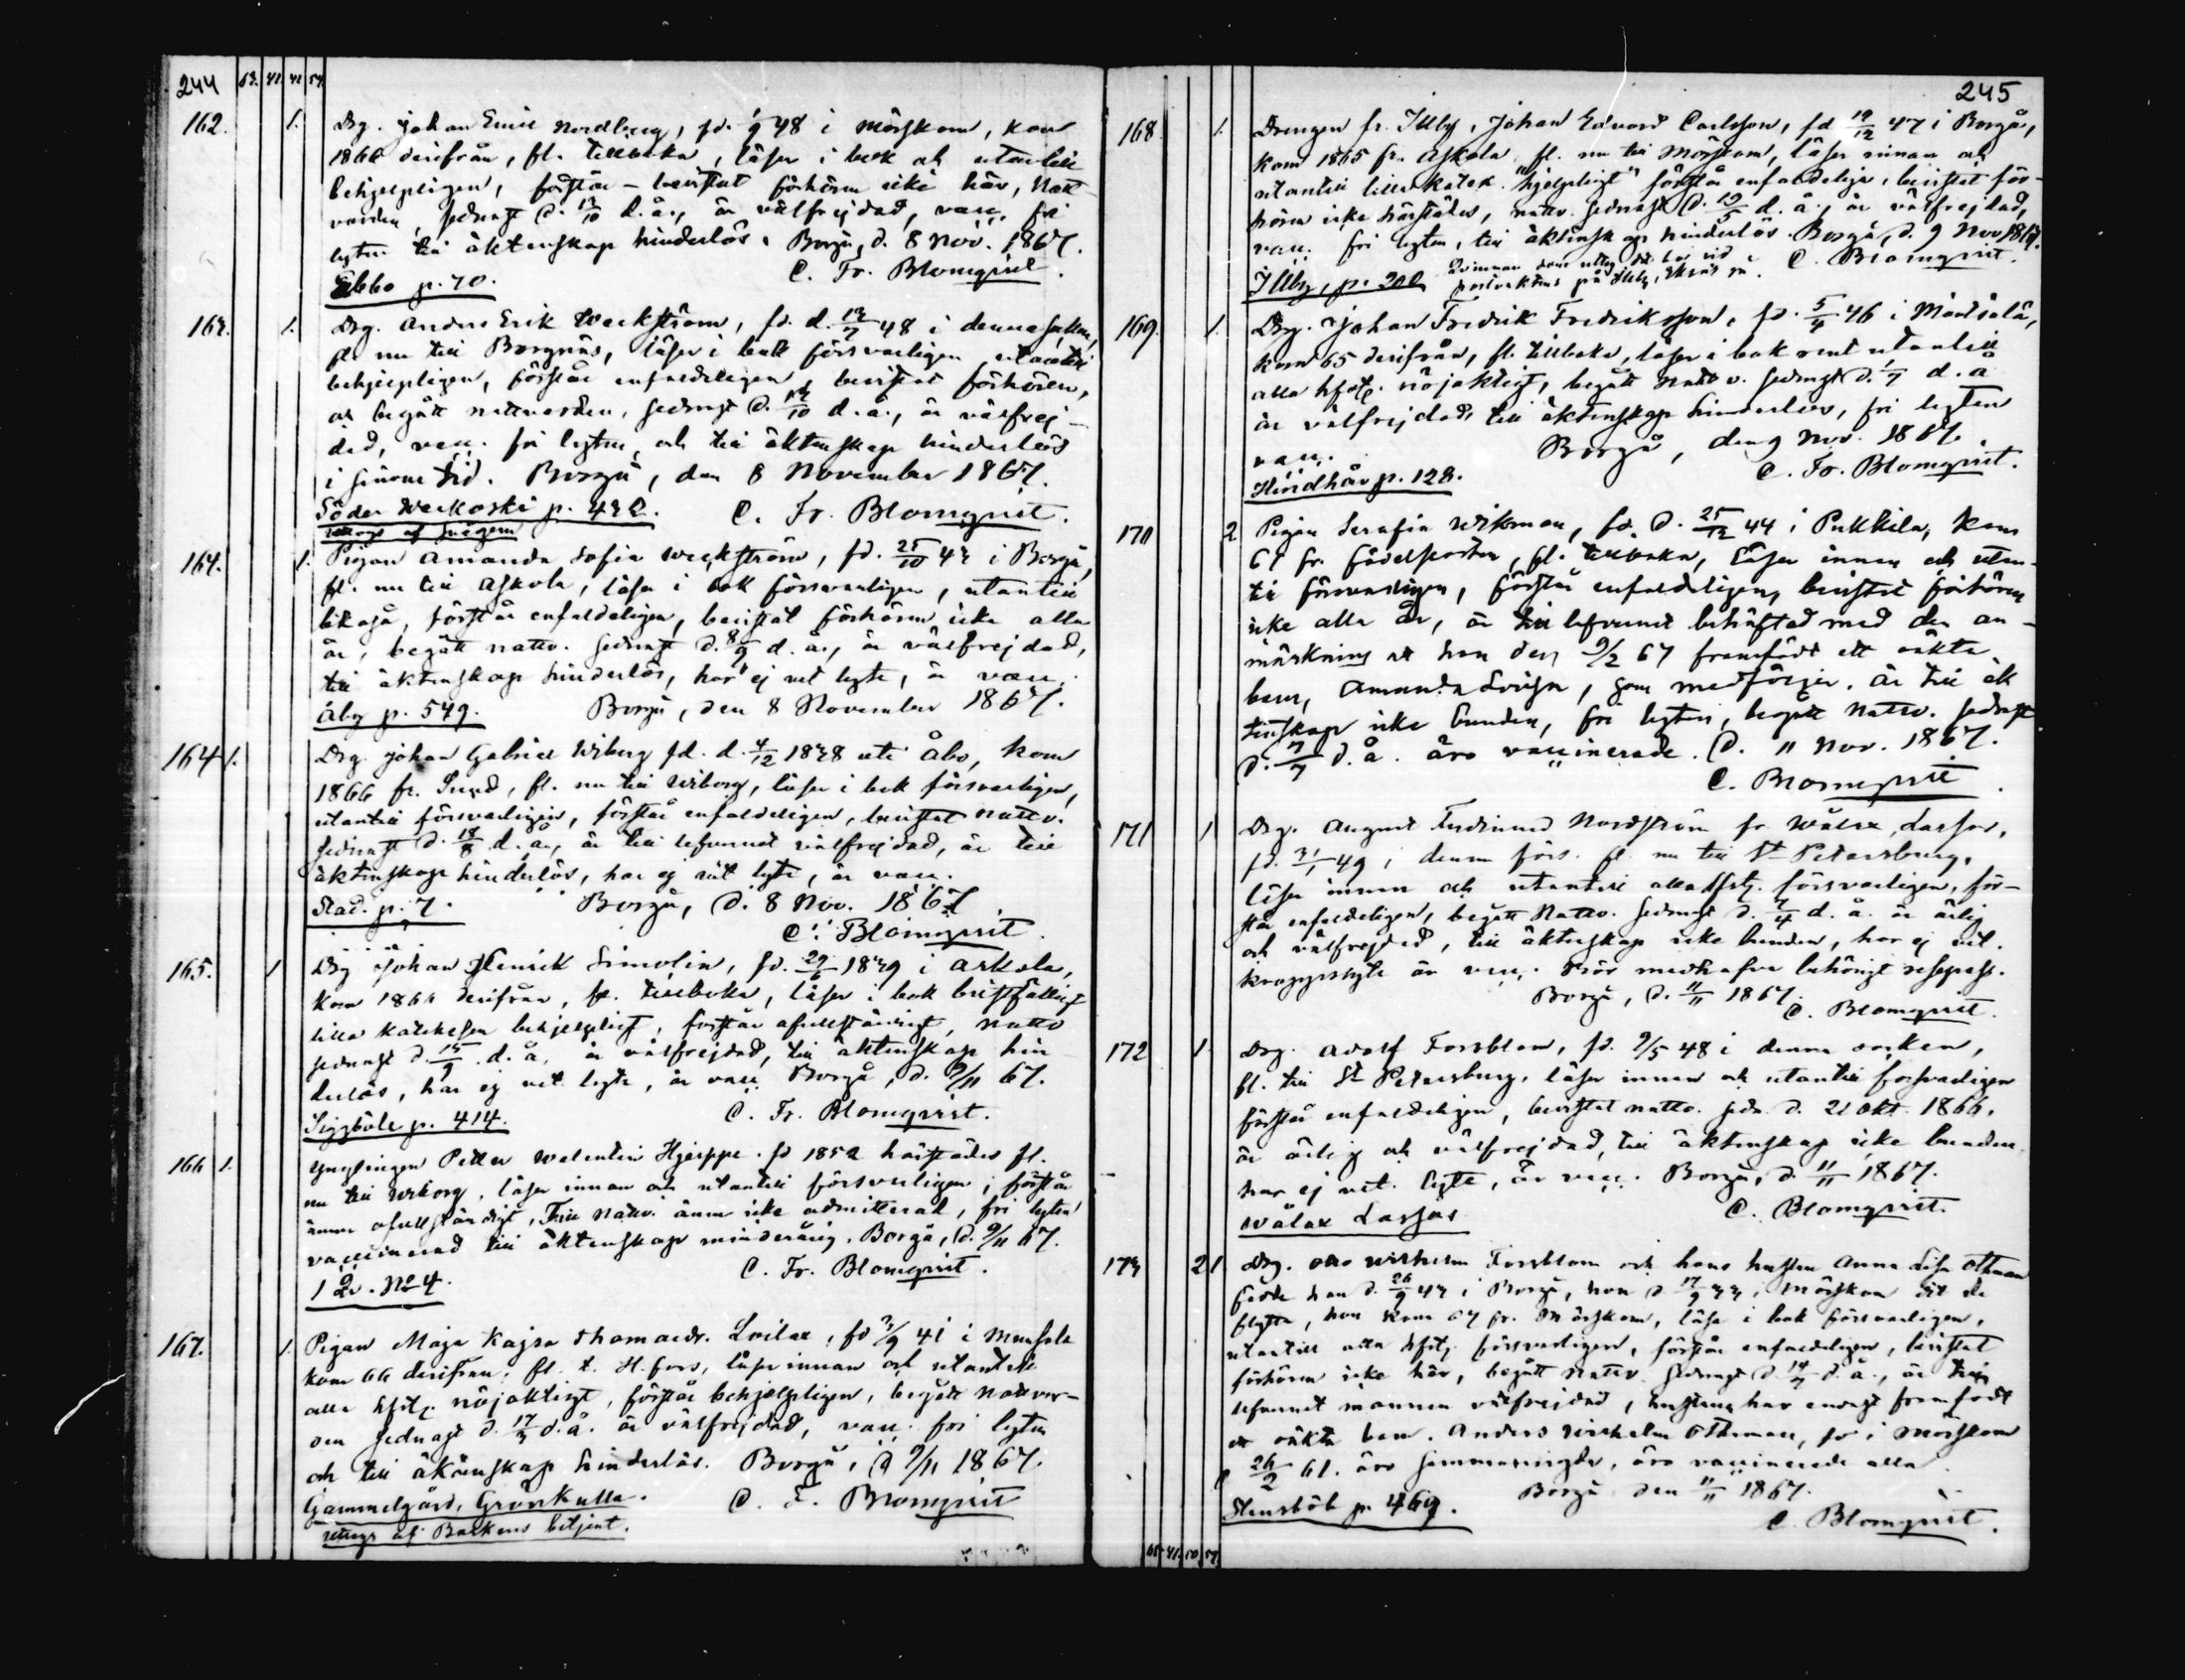 244 53. 41. 41 54.
162. 1. Drg. Johan Emil Nordberg, fd. 1/9 48 i Mörskom, kom
1866 derifrån, fl. tillbaka, läser i bok och utantill
behjelpligen, förstår – bevistat förhören icke här, Natt
varden sednast d. 13/10 d. år, är välfrejdad, vacc. fri
lyten till äktenskap hinderlös. Borgå, d. 8 Nov. 1867.
Ebbo p. 70. C. Fr. Blomqvist.
163. 1. Drg. Anders Erik Weckström, fd. d. 13/7 48 i denna socken,
fl. nu till Borgnäs, läser i bok försvarligen utantill
behjelpligen, förstår enfaldeligen, bevistat förhören,
och begått nattvarden, sednast d. 13/10 d. å., är välfrej-
dad, vacc. fri lyten och till äktenskap hinderlös
i sinom tid. Borgå, den 8 November 1867.
Söder Weckoski p. 432. C. Fr. Blomqvist.
uttogs af swågern
164. 1. Pigan Amanda Sofia Weckström, fd. 25/10 43 i Borgå,
fl. nu till Askola, läser i bok försvarligen, utantill
likaså, förstår enfaldeligen, bevistat förhören icke alla
år, begått nattv. sednast d. 8/9 d. år, är välfrejdad,
till äktenskap hinderlös, har ej vet. lyte, är vacc.
Åby p. 549. Borgå, den 8 November 1867.
164 1. Drg. Johan Gabriel Wiberg fd. d. 4/12 1838 uti Åbo, kom
1866 fr. Sund, fl. nu till Wiborg, läser i bok försvarligen,
utantill försvarligen, förstår enfaldeligen, bevistat nattv.
sednast d. 18/8 d. år, är till lefvernet välfrejdad, är till
äktenskap hinderlös, har ej vet. lyte, är vacc.
Stad. p. 7. Borgå, d. 8 Nov. 1867
C. Blomqvist.
165. 1 Drg Johan Henrik Simolin, fd. 29/6 1839 i Askola,
kom 1866 derifrån, fl. tillbaka, läser i bok bristfälligt
lilla katekesen behjelpligt, förstår ofullständigt, nattv
sednast d. 15/9 d. å. är välfrejdad, till äktenskap hin
derlös, har ej vet. lyte, är vacc. Borgå, d. 9/11 67.
Siggböle p. 414. C. Fr. Blomqvist.
166 1. Ynglingen Petter Walentin Hjerppe. fd 1852 härstädes fl.
nu till Wiborg, läser innan och utantill försvarligen, förstår
ännu ofullständigt, till Nattv. ännu icke admitterad, fri lyten
vaccinerad till äktenskap minderårig. Borgå, d. 9/11 67.
1 Qv. No 4. C. Fr. Blomqvist.
167. 1. Pigan Maja Kajsa Thomasdr. Loilax, fd 3/9 41 i Munsala
kom 66 derifrån, fl. t. H.fors, läser innan och utantill
alla hfstj. nöjaktigt, förstår behjelpligen, begått nattvar-
den sednast d. 17/3 d. å. är välfrejdad, vacc. fri lyten
och till äktenskap hinderlös. Borgå, d 9/11 1867.
Gammelgård, Grönkulla. C. F. Blomqvist
uttogs af Backens betjent.
245
168. 1. Drengen fr. Illby, Johan Edvard Carlsson, fd 19/12 47 i Borgå,
kom 1865 fr. Askola, fl. nu till Mörskom, läser innan och
utantill lilla katek. "hjelpligt" förstår enfaldeliga, bevistat för-
hören icke härstädes, nattv. sednast d. 19/5 d. å., är välfrejdad,
vacc. fri lyten, till äktenskap hinderlös. Borgå, d. 9 Nov 1867.
Illby, p. 200 Qvinnan som uttog det bor vid C. Blomqvist.
på Illby,
169. 1. Drg. Johan Fredrik Fredriksson, fd. 5/4 46 i Mäntsälä,
kom 65 derifrån, fl. tillbaka, läser i bok rent utantill
alla hfstj. nöjaktigt, begått nattv. sednast d. 1/7 d. å
är välfrejdad, till äktenskap hinderlös, fri lyten
vacc. Borgå, den 9 Nov. 1867.
Hindhår p. 128. C. Fr. Blomqvist.
170 2 Pigan Serafia Wikman, fd. d. 25/12 44 i Pukkila, kom
67 fr. födelseorten, fl. tillbaka, läser innan och utan-
till försvarligen, förstår enfaldeligen, bevistat förhören
icke alla år, är till lefvernet behäftad med den an-
märkning att hon den 9/2 67 framfödt ett oäkta
barn, Amanda Lovisa, som medföljer. Är till äk
tenskap icke bunden, fri lyten, begått nattv. sednast
d. 7/7 d. å. äro vaccinerade. d. 11 Nov. 1867.
C. Blomqvist.
171 1 Drg. August Ferdinand Nordström fr Wålax, Lassas,
fd. 31/1 49 i denna förs. fl. nu till St Petersburg,
läser innan och utantill alla hfstj. försvarligen, för-
står enfaldeligen, begått Nattv. sednast d. 7/4 d. å. är ärlig
och välfrejdad, till äktenskap icke bunden, har ej vet.
kroppslyte är vacc. bör medhafva behörigt respass.
Borgå, d. 11/11 1867.
C. Blomqvist.
172 1. Drg. Adolf Forsblom, fd. 9/5 48 i denna socken,
fl. till St Petersburg, läser innan och utantill försvarligen
förstår enfaldeligen, bevistat nattv. sedn. d. 21 okt. 1866.
är ärlig och välfrejdad, till äktenskap icke bunden
har ej vet. lyte, är vacc. Borgå, d. 11/11 1867.
Wålax Lassas C. Blomqvist.
173 2 1 Drg. Otto Wilhelm Forsblom och hans hustru Anna Lisa Othman
födde han d. 26/9 43 i Borgå, hon d 17/9 33 i Mörskom dit de
flytta, hon kom 67 fr. Mörskom, läsa i bok försvarligen,
utantill alla hfstj försvarligen, förstår enfaldeligen, bevistat
förhören icke här, begått nattv. sednast d. 14/7 d. å., är till
lefvernet mannen välfrejdad, hustrun har endast framfödt
ett oäkta barn. Anders Wilhelm Othman, fd i Mörskom
d 26/2 61. äro sammanvigde, äro vaccinerade alla.
Borgå den 11/11 1867.
Stensböle p. 469. C. Blomqvist.